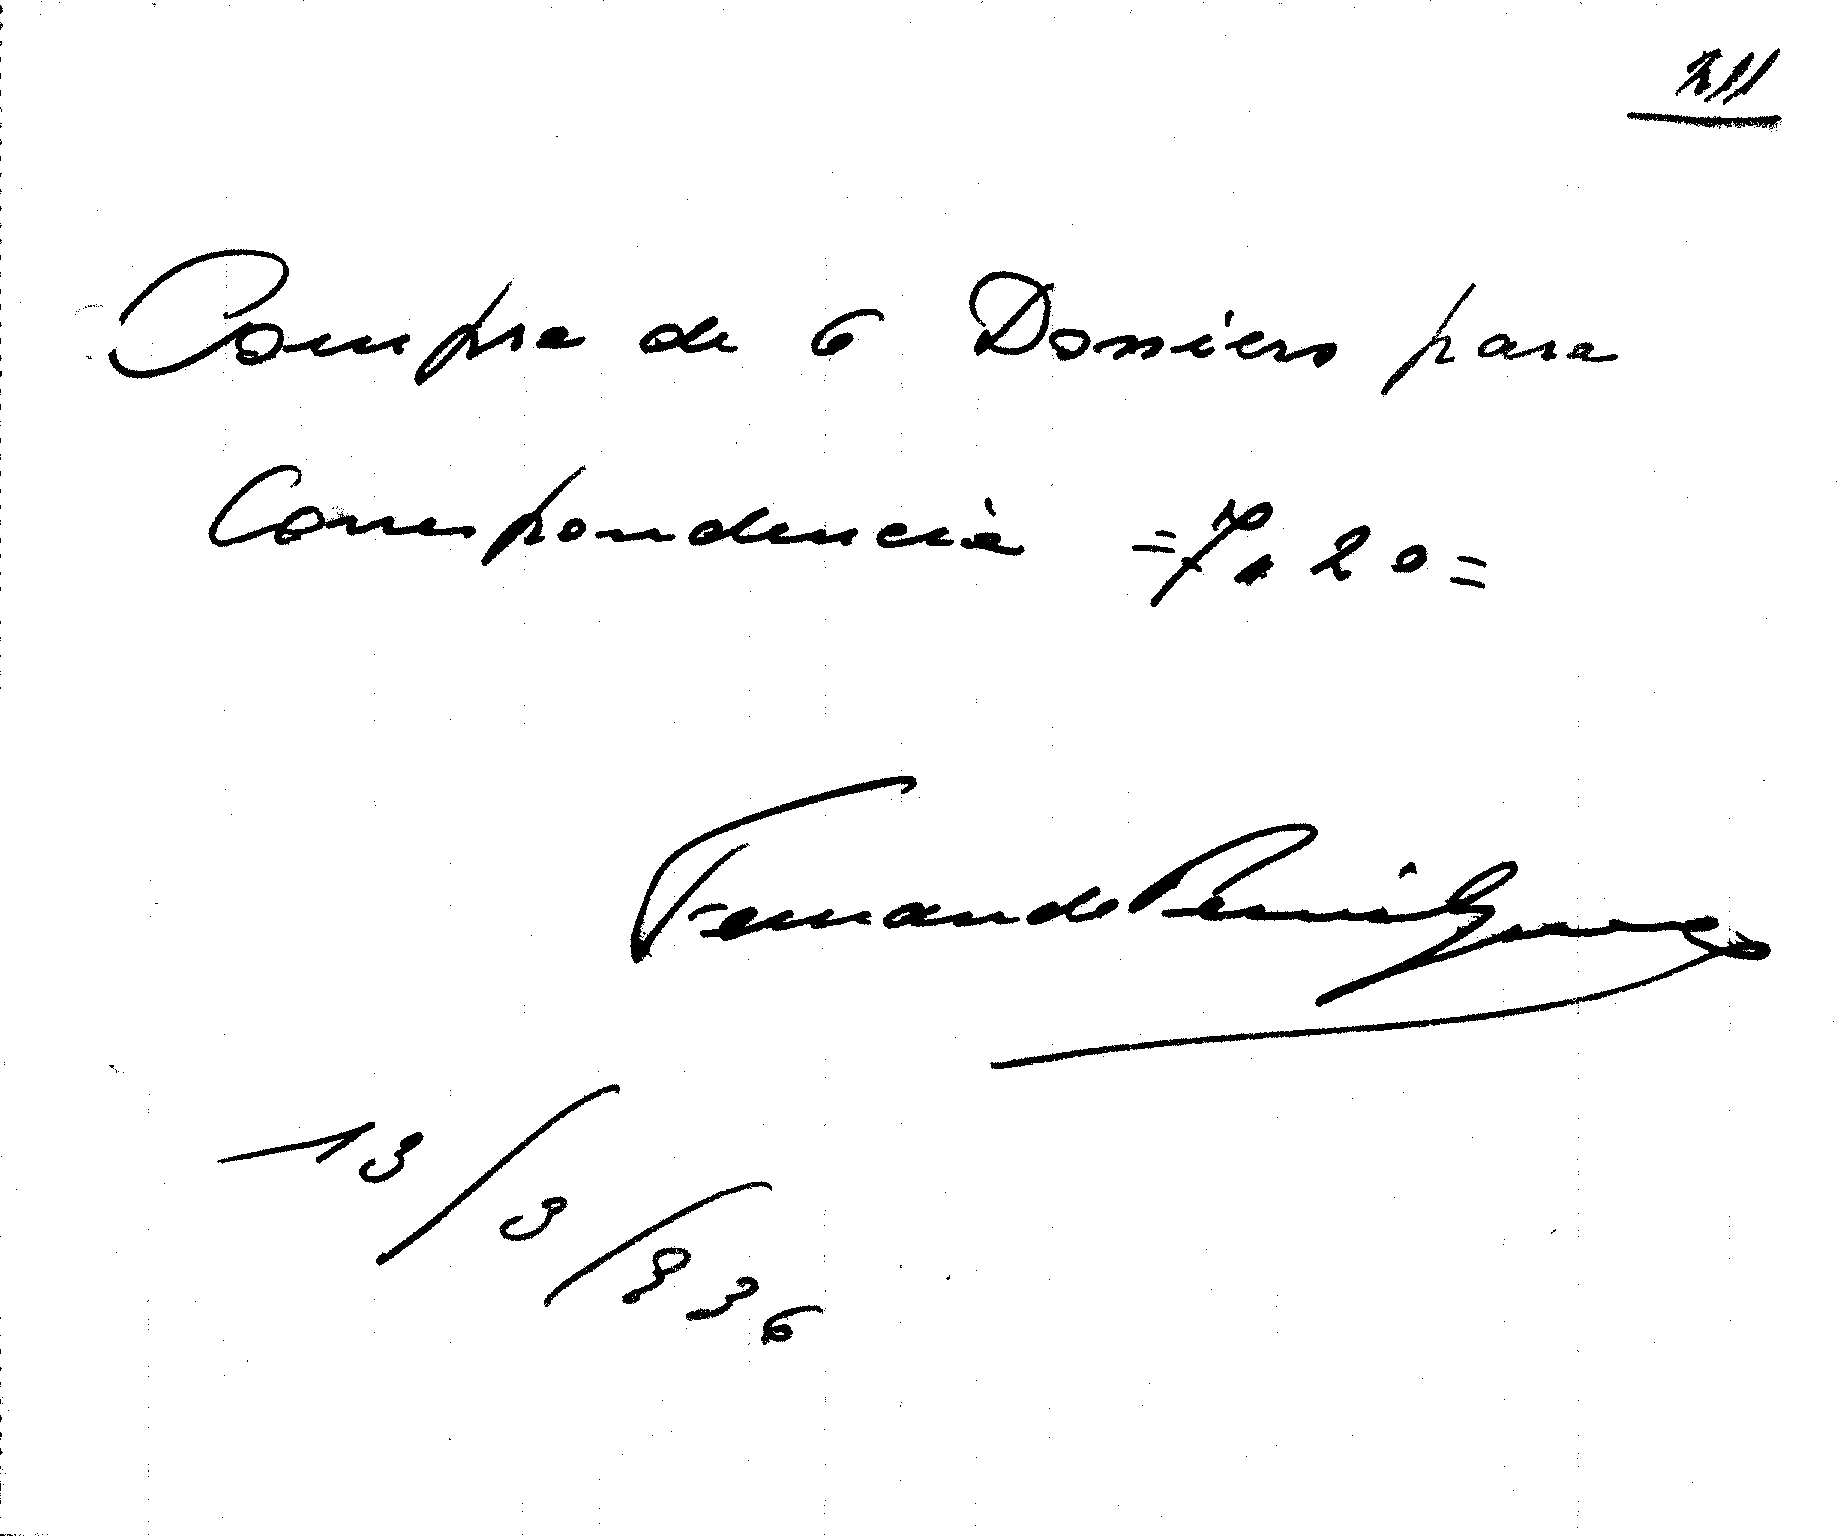 Compra de 6 Dossiers para
Correspondencia =7.20=
Fernando
13/3/936